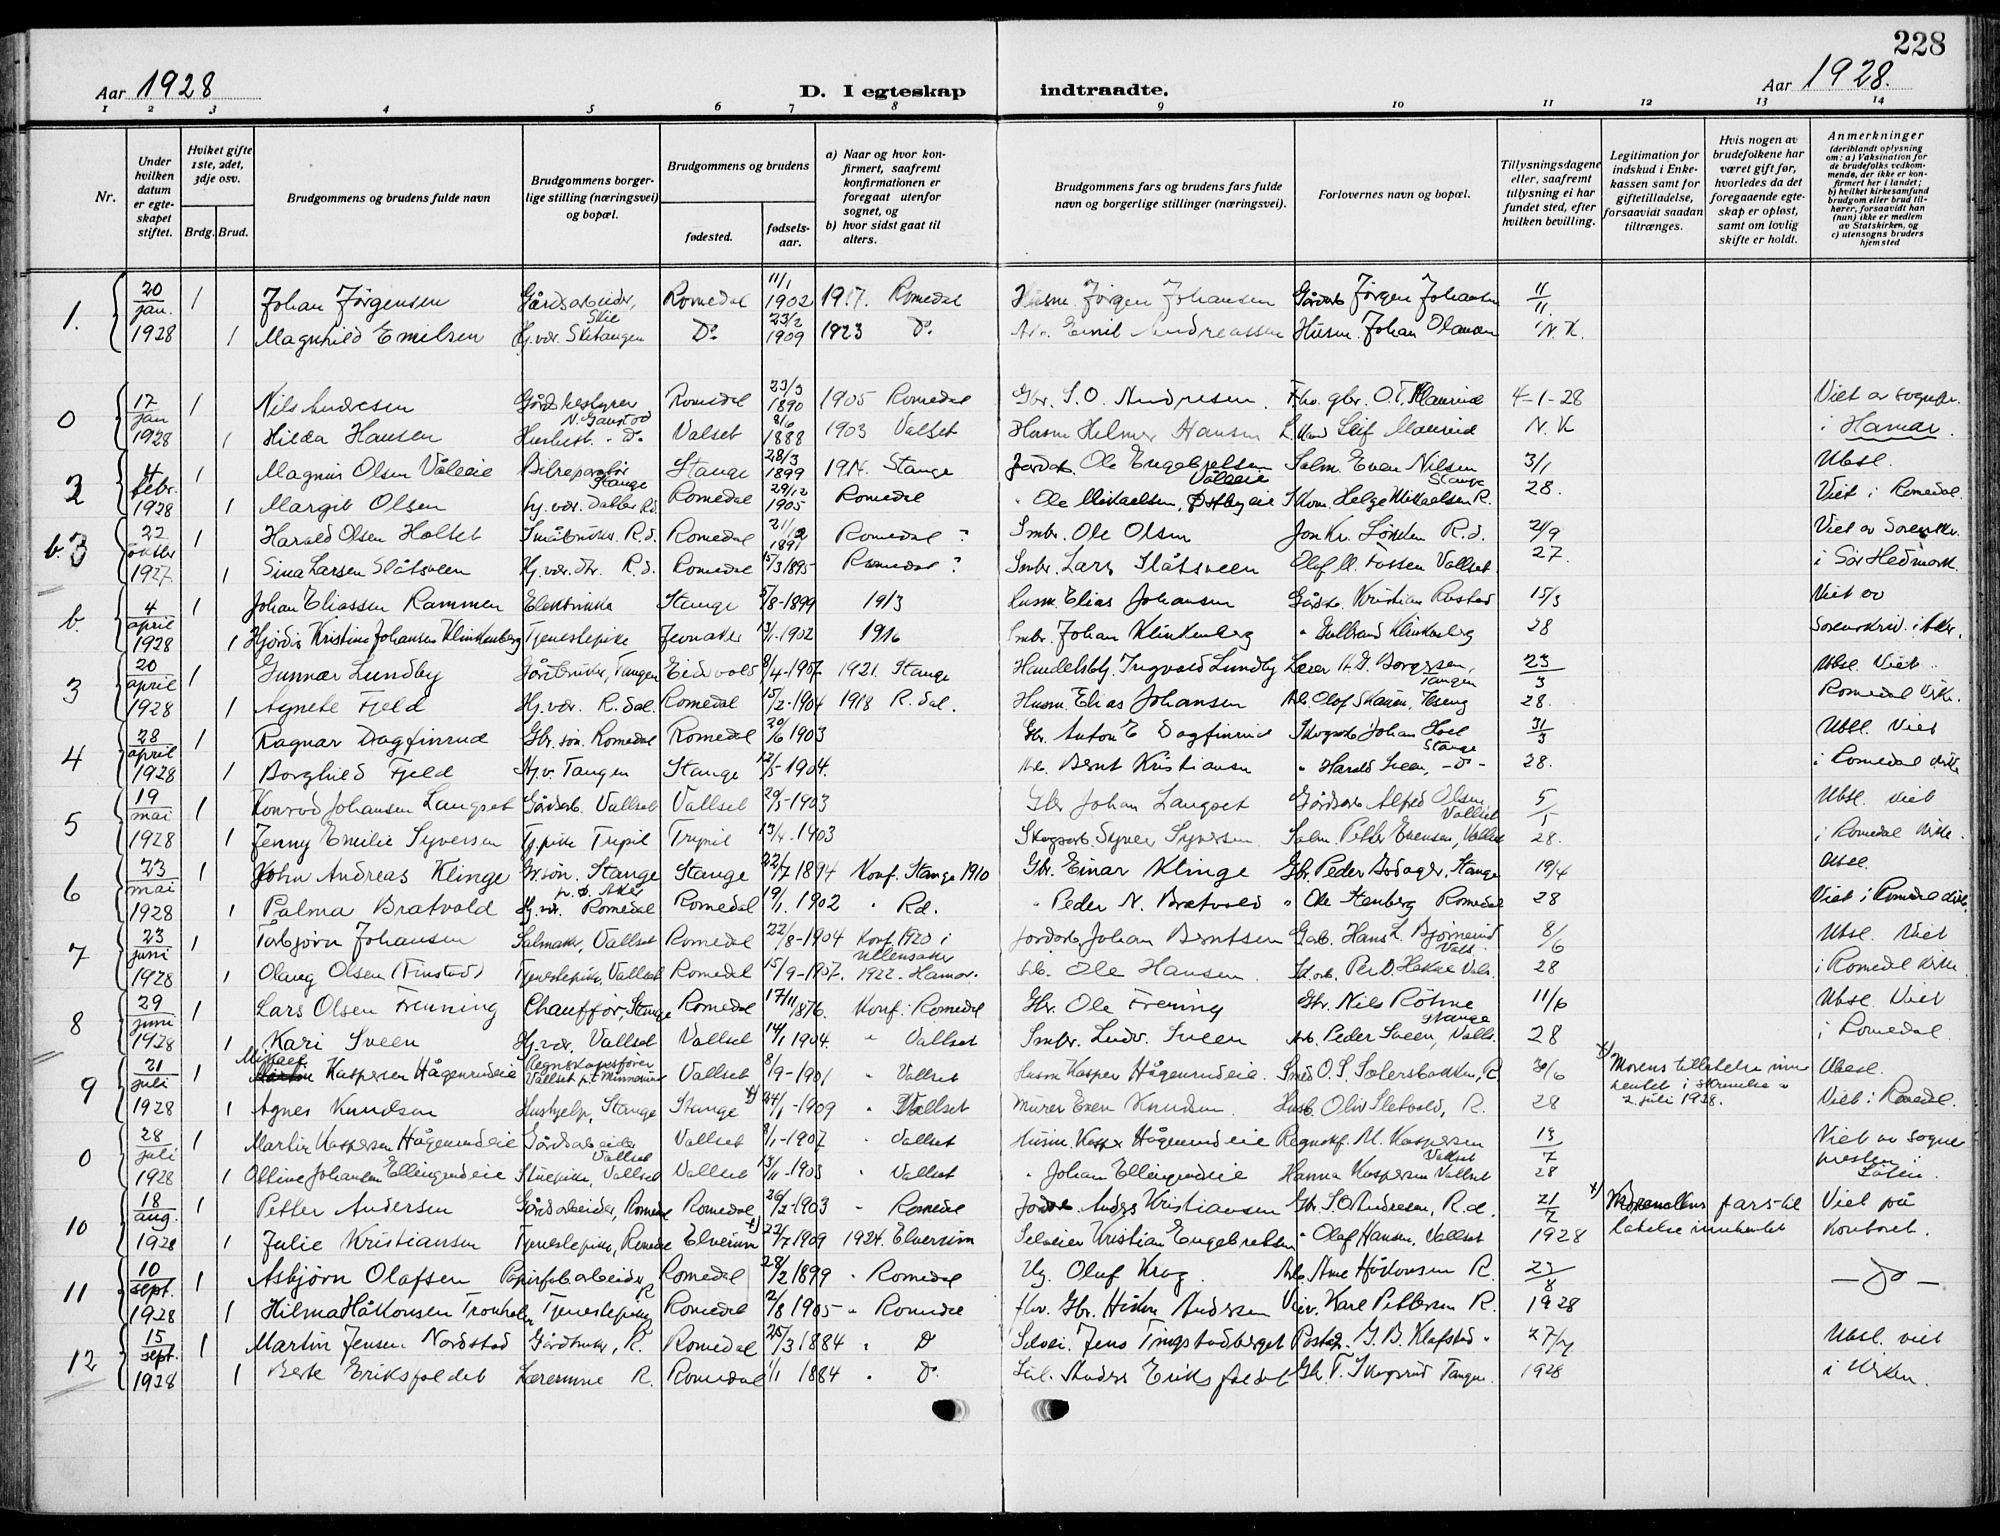 228
Aar 1928 D. I egteskap indtraadte. Aar 1928.
1 2 3 4 5 6 7 8 9 10 11 12 13 14
Nr.
Under hvilken datum er egteskapet stiftet.
Hvilket gifte 1ste, 2det, 3dje osv.
Brdg. Brud.
Brudgommens og brudens fulde navn
Brudgommens borgerlige stilling (næringsvei) og bopæl.
Brudgommens og brudens
fødested.
fødselsaar.
a) Naar og hvor konfirmert, saafremt konfirmationen er foregaat utenfor sognet, og
b) hvor sidst gaat til alters.
Brudgommens fars og brudens fars fulde navn og borgerlige stillinger (næringsvei).
Forlovernes navn og bopæl.
Tillysningsdagene eller, saafremt tillysning ei har fundet sted, efter hvilken bevilling.
Legitimation for indskud i Enkekassen samt for giftetilladelse, forsaavidt saadan tiltrænges.
Hvis nogen av brudefolkene har været gift før, hvorledes da det foregaaende egteskap er opløst, samt om lovlig skifte er holdt.
Anmerkninger (deriblandt oplysning om: a) Vaksination for de brudefolks vedkommende, der ikke er konfirmert her i landet; b) hvilket kirkesamfund brudgom eller brud tilhører, forsaavidt han (hun) ikke er medlem av Statskirken, og c) utensogns bruders hjemsted
1. 20/jan. 1 Johan Jørgensen Gårdsarbeider, Skie Romedal 11/1 1902 1917. Romedal Husm. Jørgen Johansen Gårdarb Jørgen Johansen 11/11
1928 1 Magnhild Emilsen Hj.vær. Skitangen Do 23/2 1909 1923 Do Emil Andreassen Husm. Johan Olausen N.K.
0 17/jan 1 Nils Andresen Gårdsbestyrer N. Gaustad Romedal 23/3 1890 1905 Romedal Gbr. S.O. Andresen. gbr. O.T. 4-1-28 Viet av sognepr.
1928 1 Hilda Hansen Do Valset 8/6 1888 1903 Valset Husm Helmer Hansen Leif N.K i Hamar.
2 4/febr. 1 Magnus Olsen Våleeie Bilreparatør Stange Stange 28/3 1899 1914. Stange Jordarb. Ole Engebretsen Våleeie Salm. Even Nilsen Stange 3/1 Ubsl.
1928 1 Margit Olsen Hj. vær. R.d. Romedal 29/12 1905 Romedal Ole Mikaelsen, Østbyeie Skom. Helge Mikaelsen R. 28. Viet i Romedal.
b. 3 22/oktbr 1 Harald Olsen Holtet Småbruker. R.d. Romedal 21/12 1891 Romedal? Smbr. Ole Olsen Jon Kr. R.d. 21/9 Viet av Sorenskr.
1927. 1 Sina Larsen Slåtsveen Hj.vær. dtr. R.d. Romedal 15/3 1895 Romedal? Smbr. Lars Slåtsveen Olaf M. Fossen Vallset. 27. i Sør Hedmark.
b. 4/april 1 Johan Eliassen Rammen Elektriker Stange 5/8-1899 1913 Husm. Elias Johansen Gårdbr. Kristian Rustad 15/3 Viet av
1928 1 Hjørdis Kristine Johansen Klinkenberg Tjenestepike Jevnaker 13/1-1902 1916 Smbr. Johan Klinkenberg " Gulbrand Klinkenberg 28 Sorenskriv. i Aker.
3 20/april 1 Gunnar Lundby Gårdbruker, Tangen Eidsvold 8/4-1907 1921. Stange Handelsbty. Ingvald Lundby Lærer Borgersen, Tangen 23/3 Ubsl. Viet
1928 1 Agnete Fjeld Hj.vær. R.dal. Romedal 15/2-1904 1918 R.dal. Husm. Elias Johansen Arb. Olaf Skauen, Ilseng 28. Romedal kirke.
4 28/april 1 Ragnar Dagfinrud Gbr. søn. Romedal Romedal 20/6 1903 Gbr. Anton E Dagfinrud Skogsarb. Johan Hoel Stange 31/3 Ubsl. Viet
1928 1 Borghild Fjeld Hj.v. Tangen Stange 12/5-1904. Arb. Bernt Kristiansen " Harald Sveen, -"- 28. i Romedal kirke
5 19/mai 1 Konrad Johansen Langset Gårdsarb. Vallset Vallset 20/5-1903 Gbr Johan Langset Gårdsarb Alfred Olsen Vallset 5/5 Ubsl. Viet
1928 1 Jenny Emilie Syversen Tj.pike Trysil Trysil 13/4-1903 Skogsarb. Syver Syversen Salm. Petter Evensen, Vallset 28. i Romedal kirke.
6 23/mai 1 John Andreas Klinge Gbr.søn. Stange p.t. Aker Stange 22/7 1894 Konf. Stange 1910 Gbr. Einar Klinge Gbr. Peder Stange 19/4 Ubsl.
1928 1 Palma Bratvold Hj.vær. Romedal Romedal 19/1. 1902 " Rd. " Peder N. Bratvold " Ole Stenberg Romedal 28 Viet i Romedal kirke.
7 23/juni 1 Torbjørn Johansen Salmaker, Vallset Romedal 22/8-1904 Konf. 1920 i Ullensaker Jordarb. Johan Berntsen Gab. Hans L. Bjørnerud Vals. 8/6 Ubsl. Viet
1928 1 Olaug Olsen (Finstad) Tjenestepike, Vallset Romedal 15/9-1907. 1922-Hamar. Arb. Ole Hansen Skarb. Per Vals. 28 i Romedal kirke
8 29/juni 1 Lars Olsen Frenning Chauffør, Stange Romedal 17/11 1876. Konf. Romedal Gbr. Ole Frening Gbr. Nils Röhne Stange 11/6 Ubsl. Viet
1928 1 Kari Sveen Hj.vær. Vallset Vallset 14/1 1904. " Vallset Smbr. Ludv. Sveen Arb. Peder Sveen, Valls. 28 i Romedal.
9 21/juli 1 Mikael Kaspersen Hågenrudeie Regnskapsfører Vallset p.t. Minnesund Vallset 8/9-1901 " Vallset Husm Kasper Hågenrudeie. Smed O.S. Solersbakken, R 30/6 x) Morens tillatelse inn- Ubsl.
1928 1 Agnes Knudsen Hushjelp, Stange Stange x) 24/1-1909 " Vallset Murer Even Knudsen. Husb. Oliv Sletvold, R. 28 hentet i skrivelse av 2 juli 1928. Viet i Romedal.
0 28/juli 1 Martin Kaspersen Hågenrudeie Gårdsarbeider Vallset Vallset 8/1-1907 " Vallset Husm. Kasper Hågenrudeie Regnskf. M. Kaspersen Vallset 13/7 Viet av sogne-
1928 1 Oltine Johansen Ellingsrudeie Stuepike, Vallset Vallset 13/11-1903 " Vallset " Johan Ellingsrudeie Hanna Kaspersen Vallset 28 presten i Løten
10 18/aug. 1 Petter Andersen Gårdsarbeider, Romedal Romedal 26/2-1903 " Romedal Jordarb. Anders Kristiansen Gbr. S.O. Andresen, R.d. 21/7 x) fars til- Viet på
1928 1 Julie Kristiansen Tjenestepike, Romedal Elverum x) 22/7 1909 1924. Elverum Selveier Kristian Engebretsen " Olaf Hansen, Vallset 1928 latelse innhentet kontoret.
11 10/sept. 1 Asbjørn Olafsen Papirfab.arbeider R Romedal 28/2 1899 " Romedal Ug. Oluf Krog. Arb. Arne Håkonsen R. 23/8 -"-
1928 1 Hilma Håkonsen Tronholen Tjenestepike Romedal 2/8 1905 " Romedal fhv. Gbr. Håkon Andersen Karl Pettersen R. 1928
12 15/sept. 1 Martin Jensen Nordstad Gårdbruker, R. Romedal 25/3 1884 " Do Selvei. Jens Tingstadberget Poståp. G.B. Klafstad " 27/7 Ubsl. viet
1928 1 Berte Eriksfaldet Lærerinne R. Romedal 1/1 1884 " Do Anders Eriksfaldet Gbr. T. Skogsrud Tangen. 1928 i kirken.